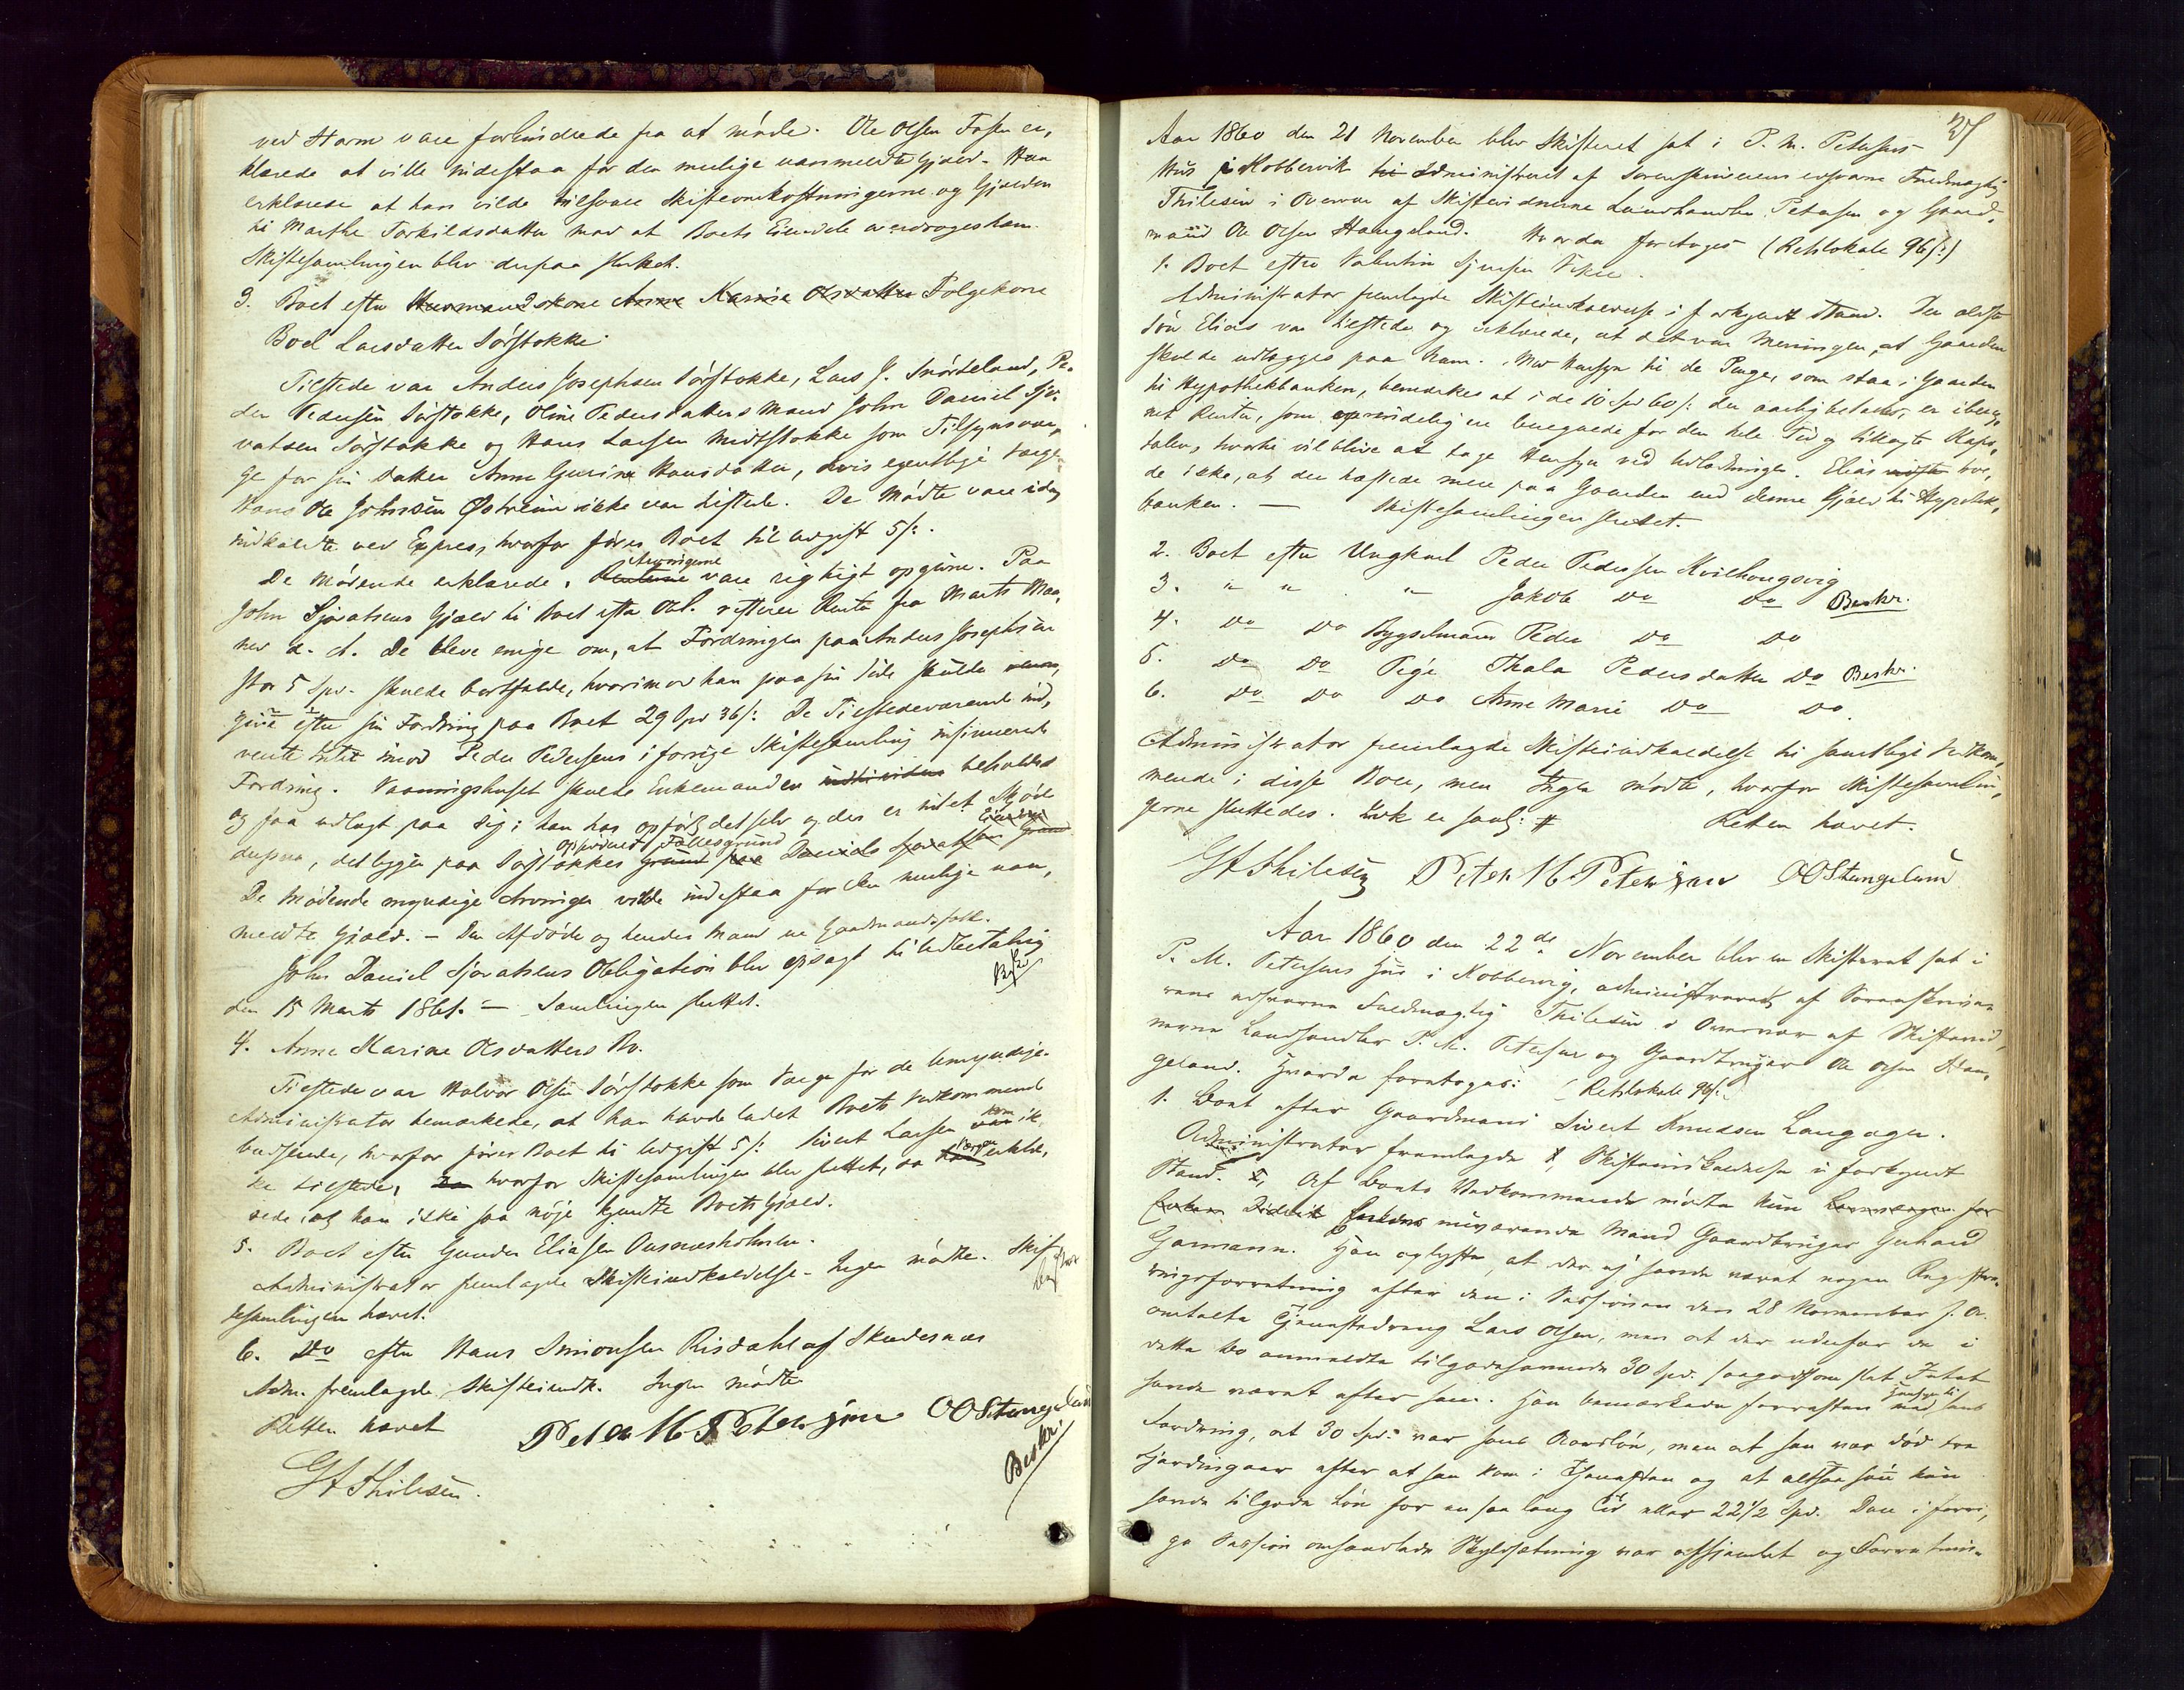 ved Storm vare forhindrede fra at møde. Ole Olsen Fosen er,
klærede at ville indestaa for den mulige uanmeldte Gjæld. Han
erklærede at han vilde tilsvare Skifteomkostningerne og Gjælden
til Marthe Torkildsdatter mod at Boets Eiendele overdroges ham.
Skiftesamlingen blev derpaa sluttet.
3. Boet efter Husmandskone Anne Karine Olsdatter Følgekone
Boel Larsdatter Sørstokke.
Tilstede var Anders Josephsen Sørstokke, Lars J. Snørteland, Pe-
der Pedersen Sørstokke, Oline Pedersdatters Mand John Daniel Sjo-
vatsen Sørstokke og Hans Larsen Midtstokke som Tilsynsvær,
ge for sin Datter Anne Gurine Hansdatter, hvis egentlige Værge
Hans Ole Johnsen Østreim ikke var tilstede. De Mødte vare idag
indkaldte ved Expres, hvorfor føres Boet til Udgift 5 s.
De Mødende erklærede, Arvingerne vare rigtigt opgivne. Paa
John Sjovatsens Gjæld til Boet efter Obl. resterer Renter fra Marts Maa,
ned d. A. De bleve enige om, at Fordringen paa Anders Josephsen
stor 5 Spd. skulde bortfalde, hvorimod han paa sin Side skulde
give efter sin Fordring paa Boet 29 Spd 36 s. De Tilstedeværende ind,
vendte intet imod Peder Pedersens i forrige Skiftesamling insinuerede
Fordring. Vaaningshuset skulde Enkemanden beholde
og faa udlagt paa sig; han har opført det selv og der er intet Skjøde
derpaa, det ligger paa Sørstokkes Fællesgrund
De Mødende myndige Arvinger vilde indestaa for den mulige uan,
meldte Gjæld. – Den Afdøde og hendes Mand var Gaardmandsfolk.
John Daniel Sjovatsens Obligation blev opsagt til Udbetaling
den 15 Marts 1861. – Samlingen sluttet.
4. Anne Karine Olsdatters Bo.
Tilstede var Halvor Olsen Sørstokke som Værge for de Umyndige.
Administrator bemærkede, at han havde ladet Boets Vedkommende
budsende, hvorfor føres Boet til Udgift 5 s. Sivert Larsen kom ik,
ke tilstede, hvorfor Skiftesamlingen blev sluttet, da Værgen erklæ,
rede, at han ikke saa nøje kjendte Boets Gjæld.
5. Boet efter Gunder Eliasen Ousnesholmen.
Administrator fremlagde Skifteindkaldelse. Ingen mødte. Skif
tesamlingen hævet.
6. Do efter Hans Simonsen Risdahl af Skudesnæs
Adm. fremlagde Skifteindk. Ingen mødte
Retten hævet
Peter M. Petersen OO Stangeland
G A Thilesen.
Beskr.
Aar 1860 den 21 November blev Skifteret sat i P. M. Petersens
Hus i Kobbervik administreret af Sorenskriverens edsvorne Fuldmægtig
Thilesen i Overvær af Skiftevidnerne Landhandler Petersen og Gaard,
mand Ole Olsen Stangeland. Hvorda foretoges (Retslokale 96 s.)
1. Boet efter Valentin Sjursen Vikre.
Administrator fremlagde Skifteindkaldelse i forkyndt Stand. Den ældste
Søn Elias var tilstede og erklærede, at det var Meningen, at Gaarden
skulde udlægges paa ham. Med Hensyn til de Penge, som staa i Gaarden
til Hypothekbanken, bemærkes at i de 10 Spd 60 s. der aarlig betales, er ibereg,
net Renter, som ere beregnede for den hele Tid og tillagte Kapi,
talen, hvorfor vil blive at tage Hensyn ved Udlodningen. Elias tro,
de ikke, at der hæftede mere paa Gaarden end denne Gjæld til Hypothek,
banken. – Skiftesamlingen sluttet.
2. Boet efter Ungkarl Peder Pedersen Kvilhaugsvig
3. " " " Jakob Do Do Beskr.
4. Do Do Bygselmand Peder Do Do
5. Do Do Pige Thala Pedersdatter Do Beskr.
6. Do Do Do Anne Marie Do Do.
Administrator fremlagde Skifteindkaldelse til samtlige Vedkom,
mende i disse Boer, men Ingen mødte, hvorfor Skiftesamlin,
gerne sluttedes. Retten hævet.
G A Thilesen Peter M. Petersen OO Stangeland
Aar 1860 den 22de November blev en Skifteret sat i
P. M. Petersens Huus i Kobbervig, administreret af Sorenskrive
rens edsvorne Fuldmægtig Thilesen i Overvær af Skiftevid,
nerne Landhandler P. M. Petersen og Gaardbruger Ole Olsen Stan,
geland. Hvorda foretoges: (Retslokale 96 s.)
1. Boet efter Gaardmand Sivert Knudsen Langager.
Administrator fremlagde Skifteindkaldelse i forkyndt
Stand. Af Boets Vedkommende mødte kun
Enkens nuværende Mand Gaardbruger Gerhard
Garmann. Han oplyste, at der ej havde været nogen Registre,
ringsforretning efter den i Sessionen den 28 November f. A.
omtalte Tjenestedreng Lars Olsen, men at der udenfor de i
dette Bo anmeldte tilgodehavende 30 Spd. saagodtsom slet Intet
havde været efter ham. Han bemærkede forresten med Hensyn til hans
Fordring, at 30 Spd. var hans Aarsløn, men at han var død tre
Fjerdingaar efter at han kom i Tjenesten og at altsaa han kun
havde tilgode Løn for en saa lang Tid eller 22 1/2 Spd. Den i forri,
ge Session omhandlede Skyldsætning var afhjemlet og Forretnin-